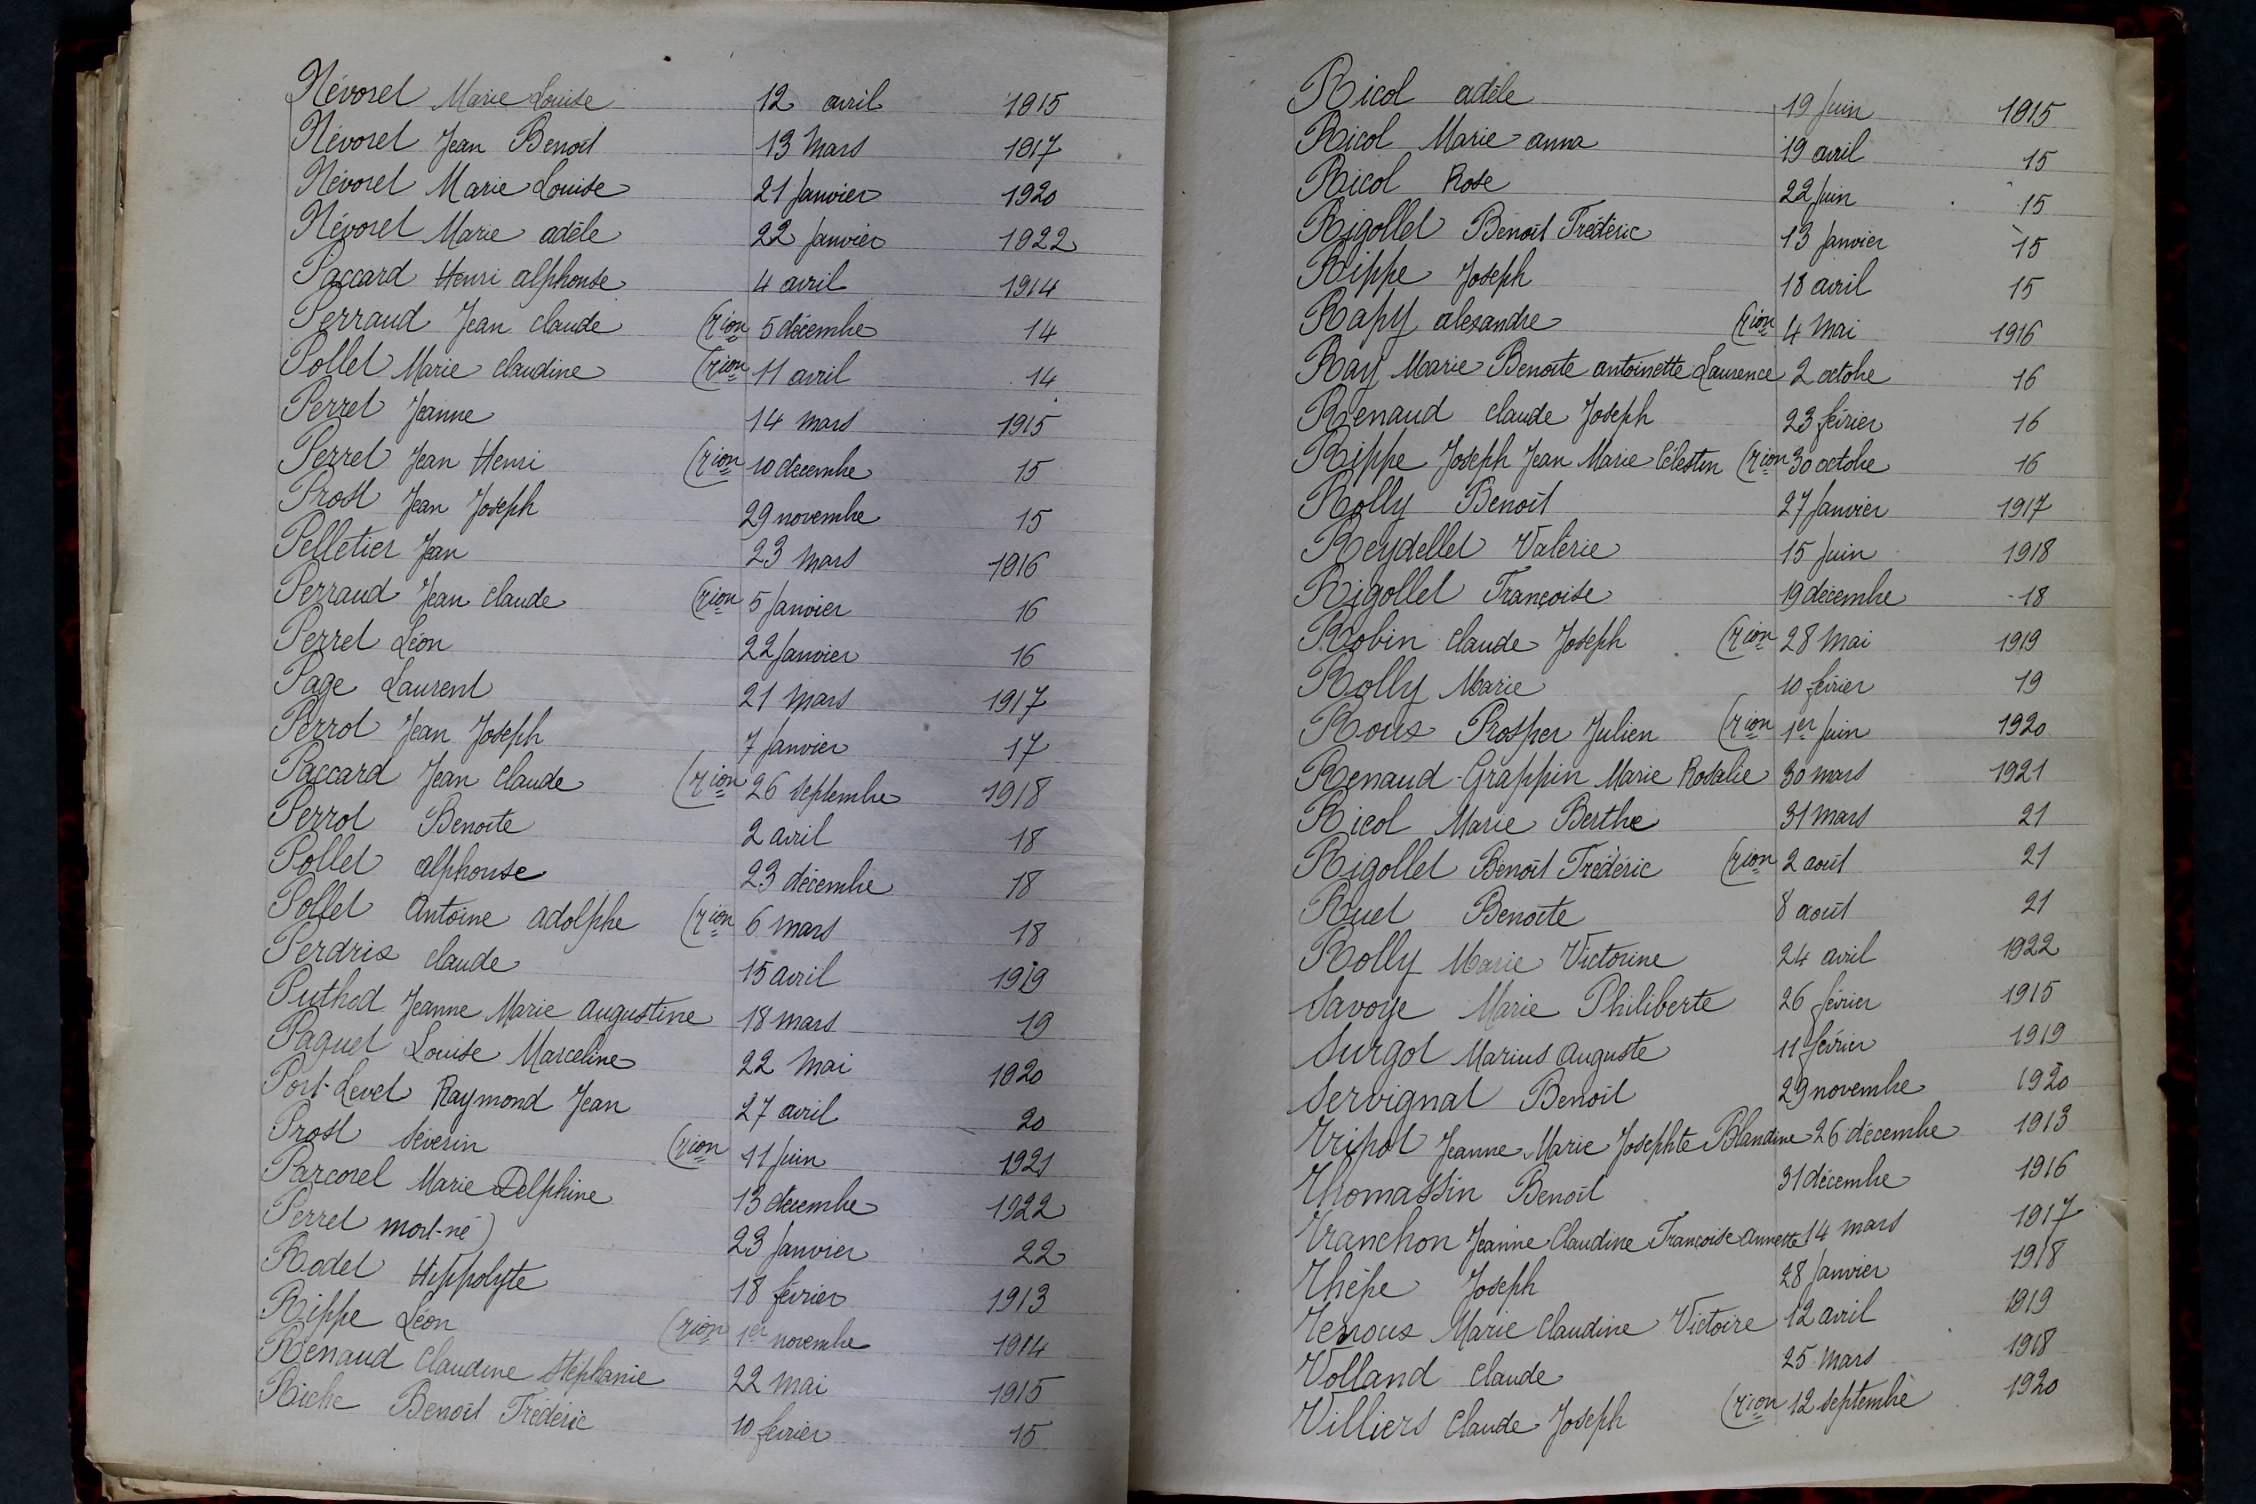 Névoret Marie Louise 12 avril 1915
Névoret Jean Benoît 13 Mars 1917
Névoret Marie Louise 21 Janvier 1920
Névoret Marie adèle 22 Janvier 1922
Paccard Henri alphonse 4 avril 1914
Perraud Jean claude (rion 5 décembre 14
Pollet Marie claudine (rion 11 avril 14
Perret Jeanne 14 mars 1915
Perret Jean Henri (rion 10 décembre 15
Prost Jean Joseph 29 novembre 15
Pelletier Jean 23 Mars 1916
Perraud Jean claude (rion 5 Janvier 16
Perret Léon 22 Janvier 16
Page Laurent 21 Mars 1917
Perrot Jean Joseph 7 Janvier 17
Paccard Jean claude (rion 26 septembre 1918
Perrot Benoite 2 avril 18
Pollet alphonse 23 décembre 18
Pollet Antoine adolphe (rion 6 mars 18
Perdrix claude 15 avril 1919
Puthod Jeanne Marie augustine 18 mars 19
Paquet Louise Marceline 22 Mai 1920
Port-Levet Raymond Jean 27 avril 20
Prost Séverin (rion 11 Juin 1921
Parcoret Marie Delphine 13 décembre 1922
Perret mort-né) 23 Janvier 22
Rodet Hippolyte 18 février 1913
Rippe Léon (rion 1er novembre 1914
Renaud Claudine Stéphanie 22 Mai 1915
Riche Benoît Frédéric 10 février 15
Ricol adèle 19 Juin 1915
Ricol Marie anna 19 avril 15
Ricol Rose 22 Juin 15
Rigollet Benoît Frédéric 13 Janvier 15
Rippe Joseph 18 avril 15
Rapy alexandre (rion 4 Mai 1916
Ray Marie Benoîte antoinette Laurence 2 octobre 16
Renaud claude Joseph 23 février 16
Rippe Joseph Jean Marie Célestin (rion 30 octobre 16
Rolly Benoît 27 Janvier 1917
Reydellet Valérie 15 Juin 1918
Rigollet Françoise 19 décembre 18
Robin claude Joseph (rion 28 Mai 1919
Rolly Marie 10 février 19
Roux Prosper Julien (rion 1er Juin 1920
Renaud-Grappin Marie Rosalie 30 mars 1921
Ricol Marie Berthe 31 Mars 21
Rigollet Benoît Frédéric (rion 2 août 21
Ruet Benoîte 8 août 21
Rolly Marie Victorine 24 avril 1922
Savoye Marie Philiberte 26 février 1915
Surgot Marius Auguste 11 février 1919
Servignat Benoît 29 novembre 1920
Tripot Jeanne Marie Josephte Blandine 26 décembre 1913
Thomassin Benoît 31 décembre 1916
Tranchon Jeanne Claudine Françoise annette 14 mars 1917
Thépe Joseph 28 Janvier 1918
Terroux Marie Claudine Victoire 12 avril 1919
Volland Claude 25 Mars 1918
Villiers Claude Joseph (rion 12 septembre 1920